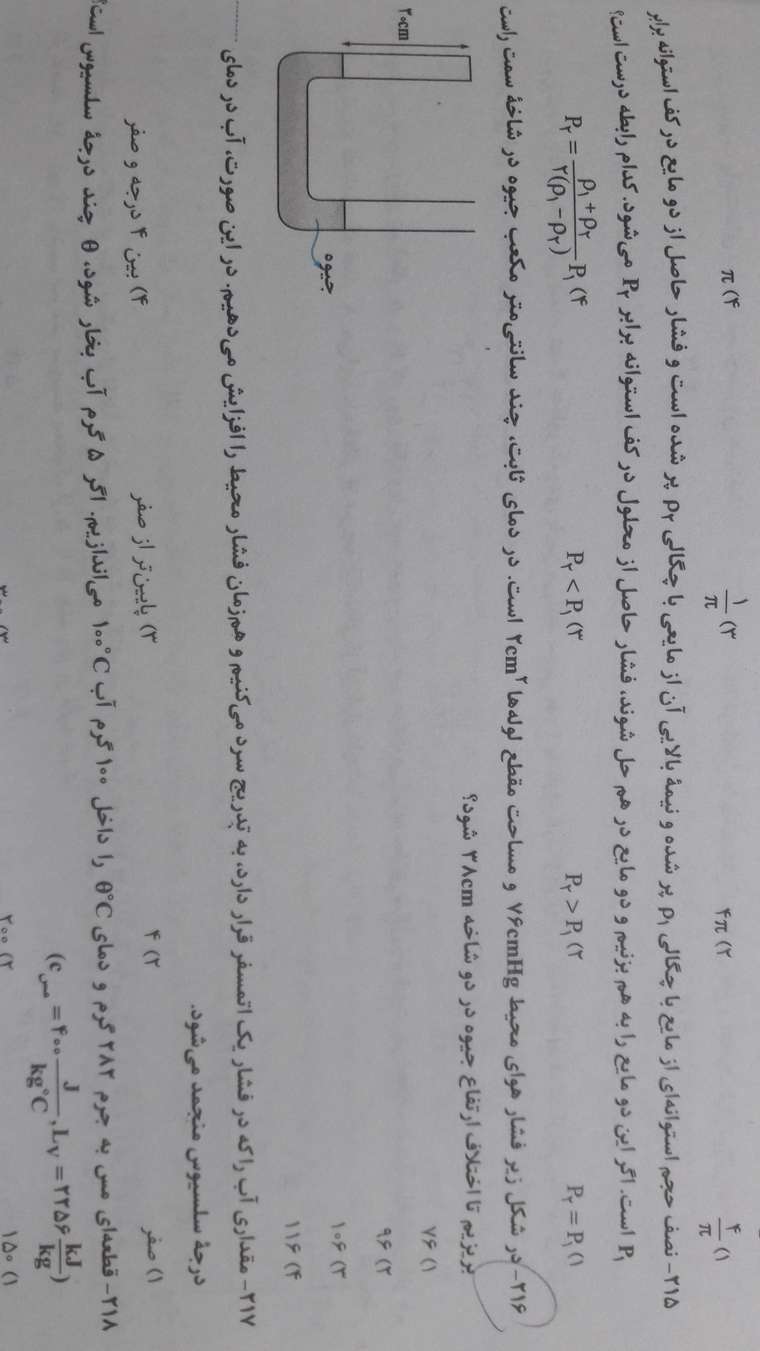 ۱) ۴/π ۲) ۴π ۳) ۱/π ۴) π
۲۱۵- نصف حجم استوانه‌ای از مایع با چگالی ρ₁ پر شده و نیمهٔ بالایی آن از مایعی با چگالی ρ₂ پر شده است و فشار حاصل از دو مایع در کف استوانه برابر
P₁ است. اگر این دو مایع را به هم بزنیم و دو مایع در هم حل شوند، فشار حاصل از محلول در کف استوانه برابر P₂ می‌شود. کدام رابطه درست است؟
۱) P₂ = P₁ ۲) P₂ > P₁ ۳) P₂ < P₁ ۴) P₂ = (ρ₁ + ρ₂)/(۲(ρ₁ - ρ₂)) P₁
۲۱۶- در شکل زیر فشار هوای محیط ۷۶cmHg و مساحت مقطع لوله‌ها ۲cm² است. در دمای ثابت، چند سانتی‌متر مکعب جیوه در شاخهٔ سمت راست
بریزیم تا اختلاف ارتفاع جیوه در دو شاخه ۳۸cm شود؟
۱) ۷۶
۲) ۹۶
۳) ۱۰۶
۴) ۱۱۶
۲۰cm
جیوه
۲۱۷- مقداری آب را که در فشار یک اتمسفر قرار دارد، به تدریج سرد می‌کنیم و هم‌زمان فشار محیط را افزایش می‌دهیم. در این صورت، آب در دمای ..........
درجهٔ سلسیوس منجمد می‌شود.
۱) صفر ۲) ۴ ۳) پایین‌تر از صفر ۴) بین ۴ درجه و صفر
۲۱۸- قطعه‌ای مس به جرم ۲۸۲ گرم و دمای θ°C را داخل ۱۰۰ گرم آب ۱۰۰°C می‌اندازیم. اگر ۵ گرم آب بخار شود، θ چند درجهٔ سلسیوس است؟
(c مس = ۴۰۰ J/kg°C , L_V = ۲۲۵۶ kJ/kg)
۱) ۱۵۰ ۲) ۲۰۰ ۳) ۳۰۰